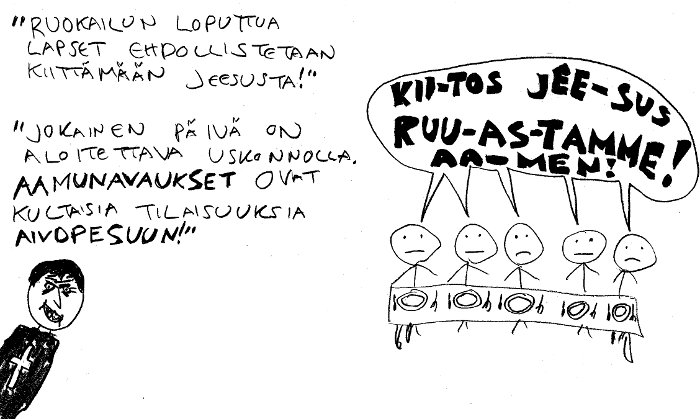 "RUOKAILUN LOPUTTUA
LAPSET EHDOLLISTETAAN
KIITTÄMÄÄN JEESUSTA!"
"JOKAINEN PÄIVÄ ON
ALOITETTAVA USKONNOLLA.
AAMUNAVAUKSET OVAT
KULTAISIA TILAISUUKSIA
AIVOPESUUN!"
KII-TOS JÊE-SUS
RUU-AS-TAMME!
AA-MEN!